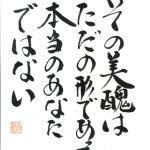 その美醜は
ただの形である
本当のあなた
ではない